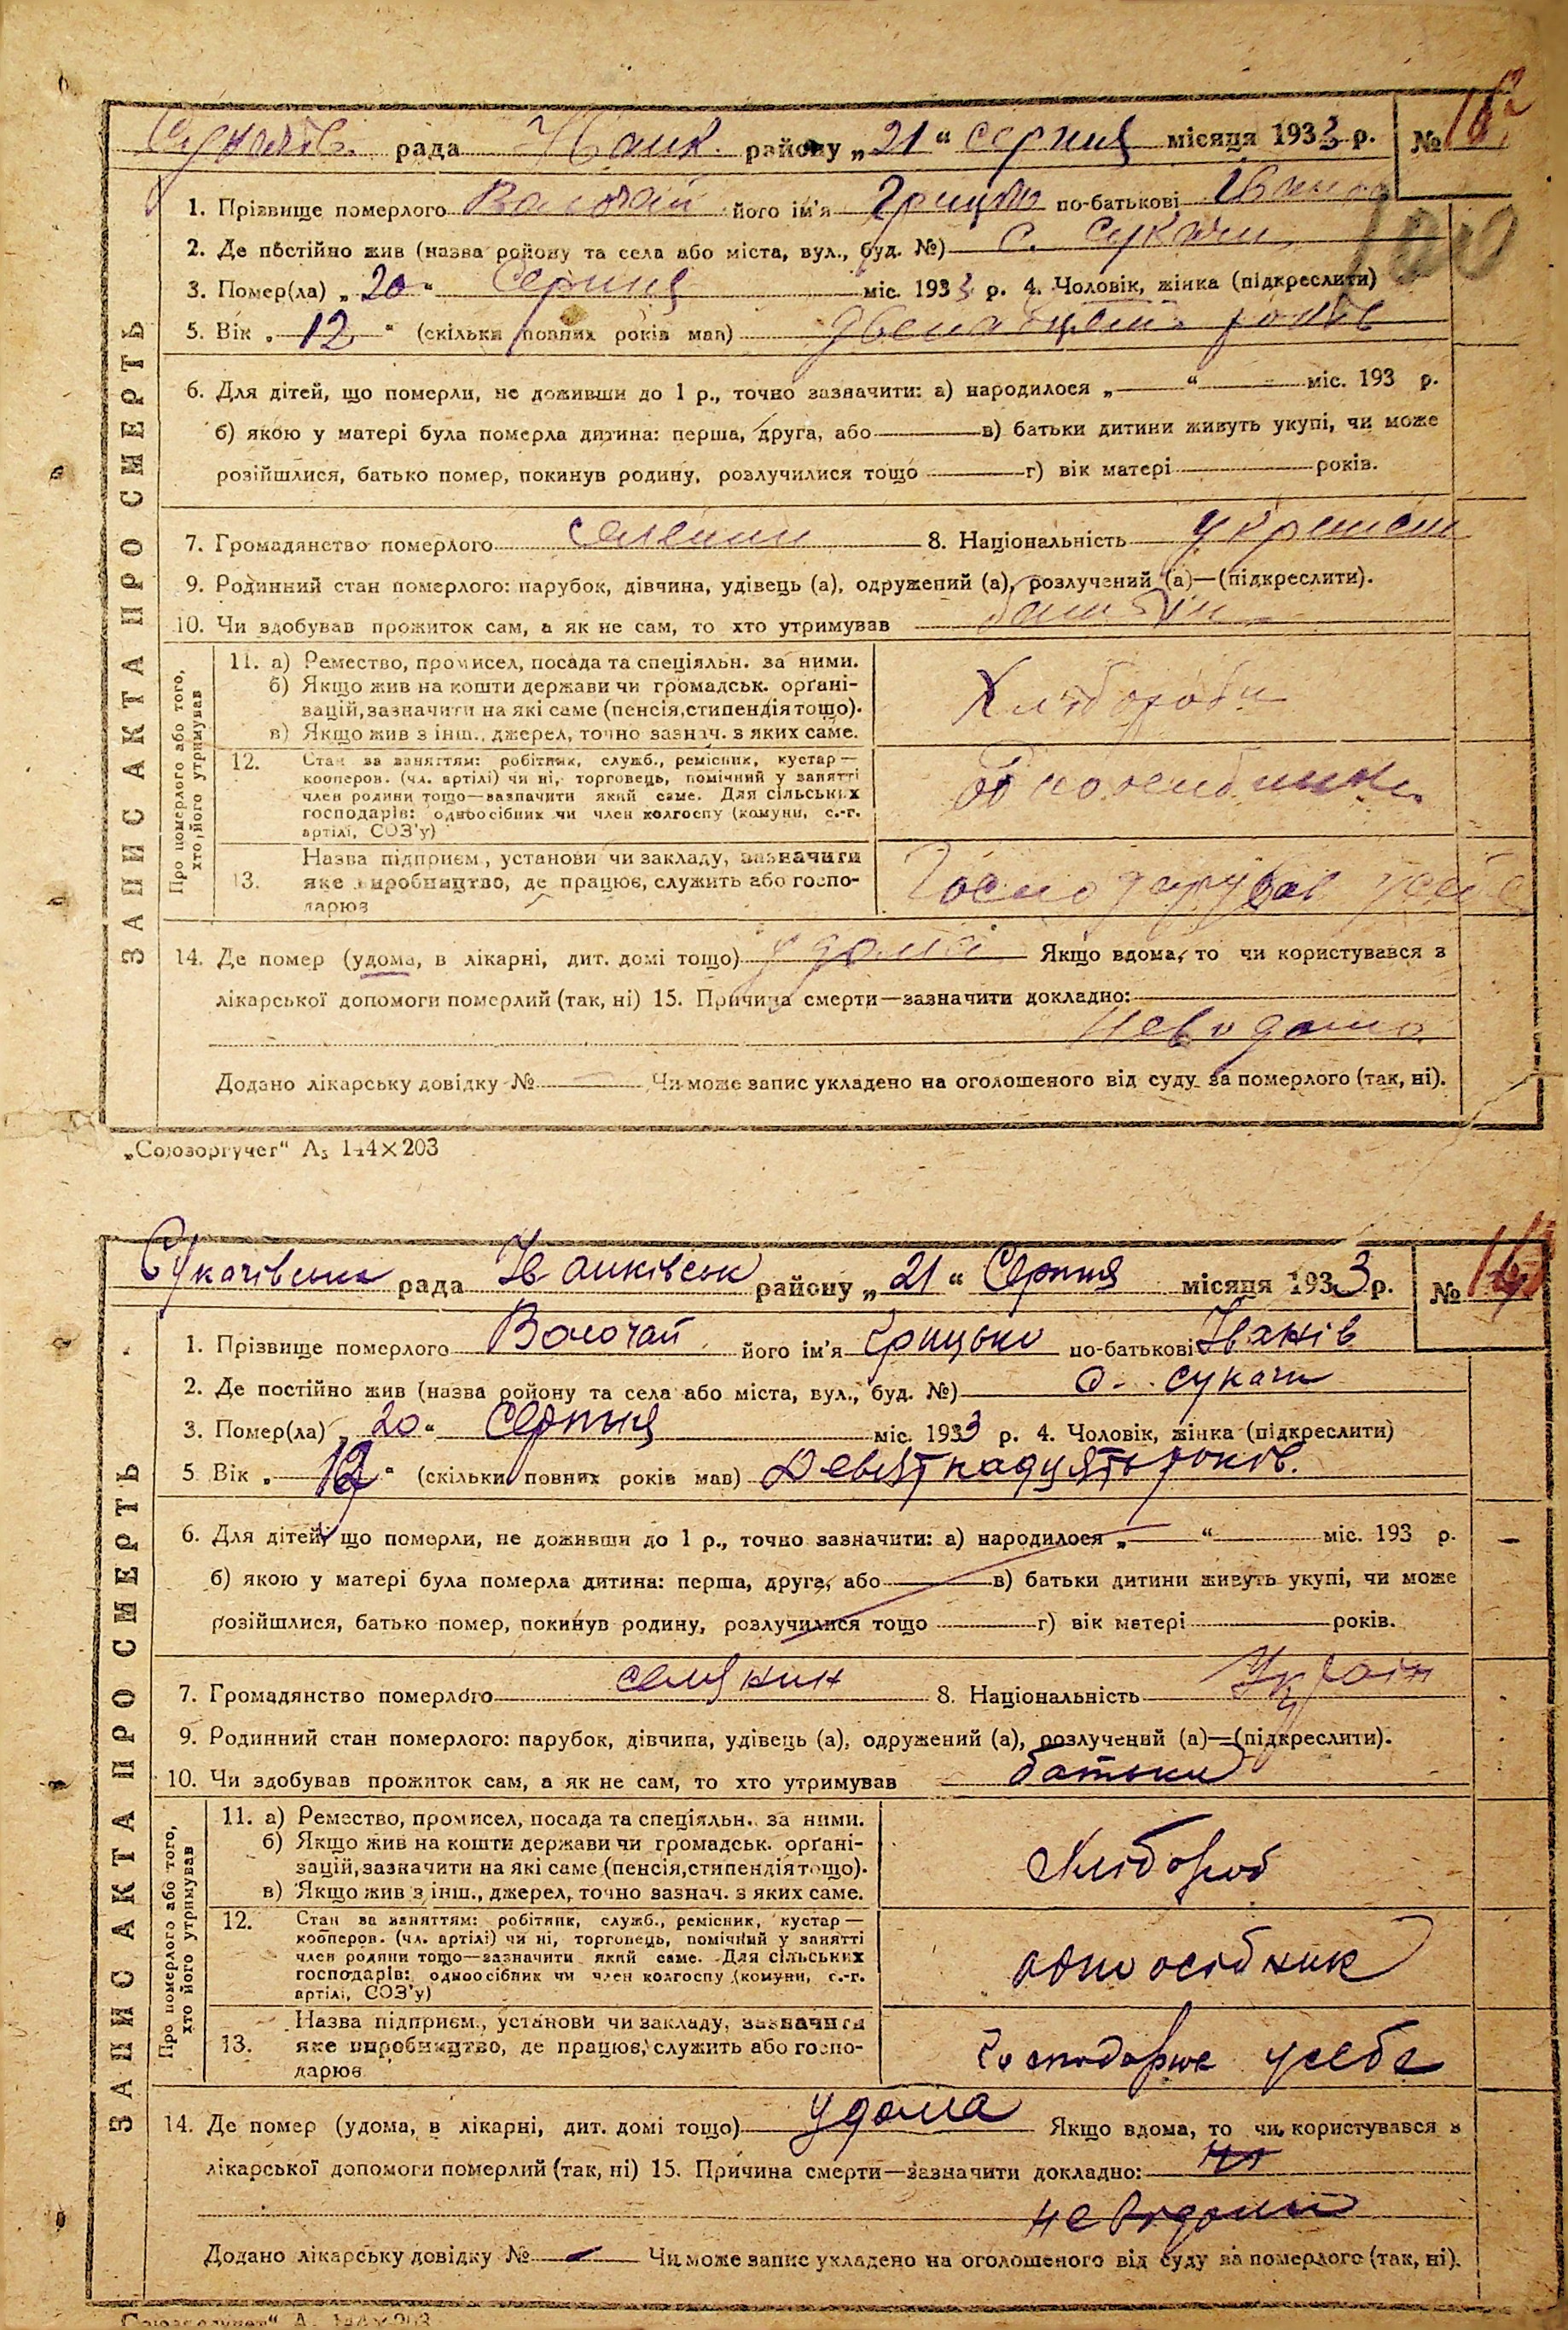 рада район у „21" серпня місяця 1933 р. №
1. Прізвище померлого Волочай його ім'я Грицько по-батькові
2. Де постійно жив (назва ройону та села або міста, вул., буд. №) с. Сукачи
3. Помер(ла) „20" Серпня міс. 1933 р. 4. Чоловік, жінка (підкреслити)
5. Вік „12" (скільки повних років мав) років
6. Для дітей, що померли, не доживши до 1 р., точно зазначити: а) народилося „ " міс. 193 р.
б) якою у матері була померла дитина: перша, друга, або в) батьки дитини живуть укупі, чи може
розійшлися, батько помер, покинув родину, розлучилися тощо г) вік матері років.
7. Громадянство померлого 8. Національність
9. Родинний стан померлого: парубок, дівчина, удівець (а), одружений (а), розлучений (а)—(підкреслити).
10. Чи здобував прожиток сам, а як не сам, то хто утримував батьки
ЗАПИС АКТА ПРО СМЕРТЬ
Про померлого або того, хто його утримував
11. а) Ремество, промисел, посада та спеціяльн. за ними.
б) Якщо жив на кошти держави чи громадськ. орґані-
зацій, зазначити на які саме (пенсія, стипендія тощо).
в) Якщо жив з інш., джерел, точно зазнач. з яких саме.
Хлібороби
12. Стан за заняттям: робітник, служб., ремісник, кустар—
кооперов. (чл. артілі) чи ні, торговець, помічний у занятті
член родини тощо—зазначити який саме. Для сільських
господарів: одноосібник чи член колгоспу (комуни, с.-г.
артілі, СОЗ'у)
13. Назва підприєм., установи чи закладу, зазначити
яке виробництво, де працює, служить або госпо-
дарює
Господарував у себе
14. Де помер (удома, в лікарні, дит. домі тощо) удома Якщо вдома, то чи користувався з
лікарської допомоги померлий (так, ні) 15. Причина смерти—зазначити докладно:
невідома
Додано лікарську довідку № Чи може запис укладено на оголошеного від суду за померлого (так, ні).
„Союзоргучет" А₅ 144×203
Сукачівська рада Іванківськ району „21" Серпня місяця 1933 р. №
1. Прізвище померлого Волочай його ім'я Грицько по-батькові Іванів
2. Де постійно жив (назва ройону та села або міста, вул., буд. №) с. Сукачи
3. Помер(ла) „20" Серпня міс. 1933 р. 4. Чоловік, жінка (підкреслити)
5. Вік „ " (скільки повних років мав) Девятнадцять років.
6. Для дітей, що померли, не доживши до 1 р., точно зазначити: а) народилося „ " міс. 193 р.
б) якою у матері була померла дитина: перша, друга, або в) батьки дитини живуть укупі, чи може
розійшлися, батько помер, покинув родину, розлучилися тощо г) вік матері років.
7. Громадянство померлого селянин 8. Національність Україн
9. Родинний стан померлого: парубок, дівчина, удівець (а), одружений (а), розлучений (а)—(підкреслити).
10. Чи здобував прожиток сам, а як не сам, то хто утримував батьки
ЗАПИС АКТА ПРО СМЕРТЬ
Про померлого або того, хто його утримував
11. а) Ремество, промисел, посада та спеціяльн. за ними.
б) Якщо жив на кошти держави чи громадськ. орґані-
зацій, зазначити на які саме (пенсія, стипендія тощо).
в) Якщо жив з інш., джерел, точно зазнач. з яких саме.
Хлібороб
12. Стан за заняттям: робітник, служб., ремісник, кустар—
кооперов. (чл. артілі) чи ні, торговець, помічний у занятті
член родини тощо—зазначити який саме. Для сільських
господарів: одноосібник чи член колгоспу (комуни, с.-г.
артілі, СОЗ'у)
одноосібник
13. Назва підприєм., установи чи закладу, зазначити
яке виробництво, де працює, служить або госпо-
дарює
Господарює усебе
14. Де помер (удома, в лікарні, дит. домі тощо) удома Якщо вдома, то чи користувався з
лікарської допомоги померлий (так, ні) 15. Причина смерти—зазначити докладно: ні
Додано лікарську довідку № — Чи може запис укладено на оголошеного від суду за померлого (так, ні).
„Союзоргучет" А₅ 144×203